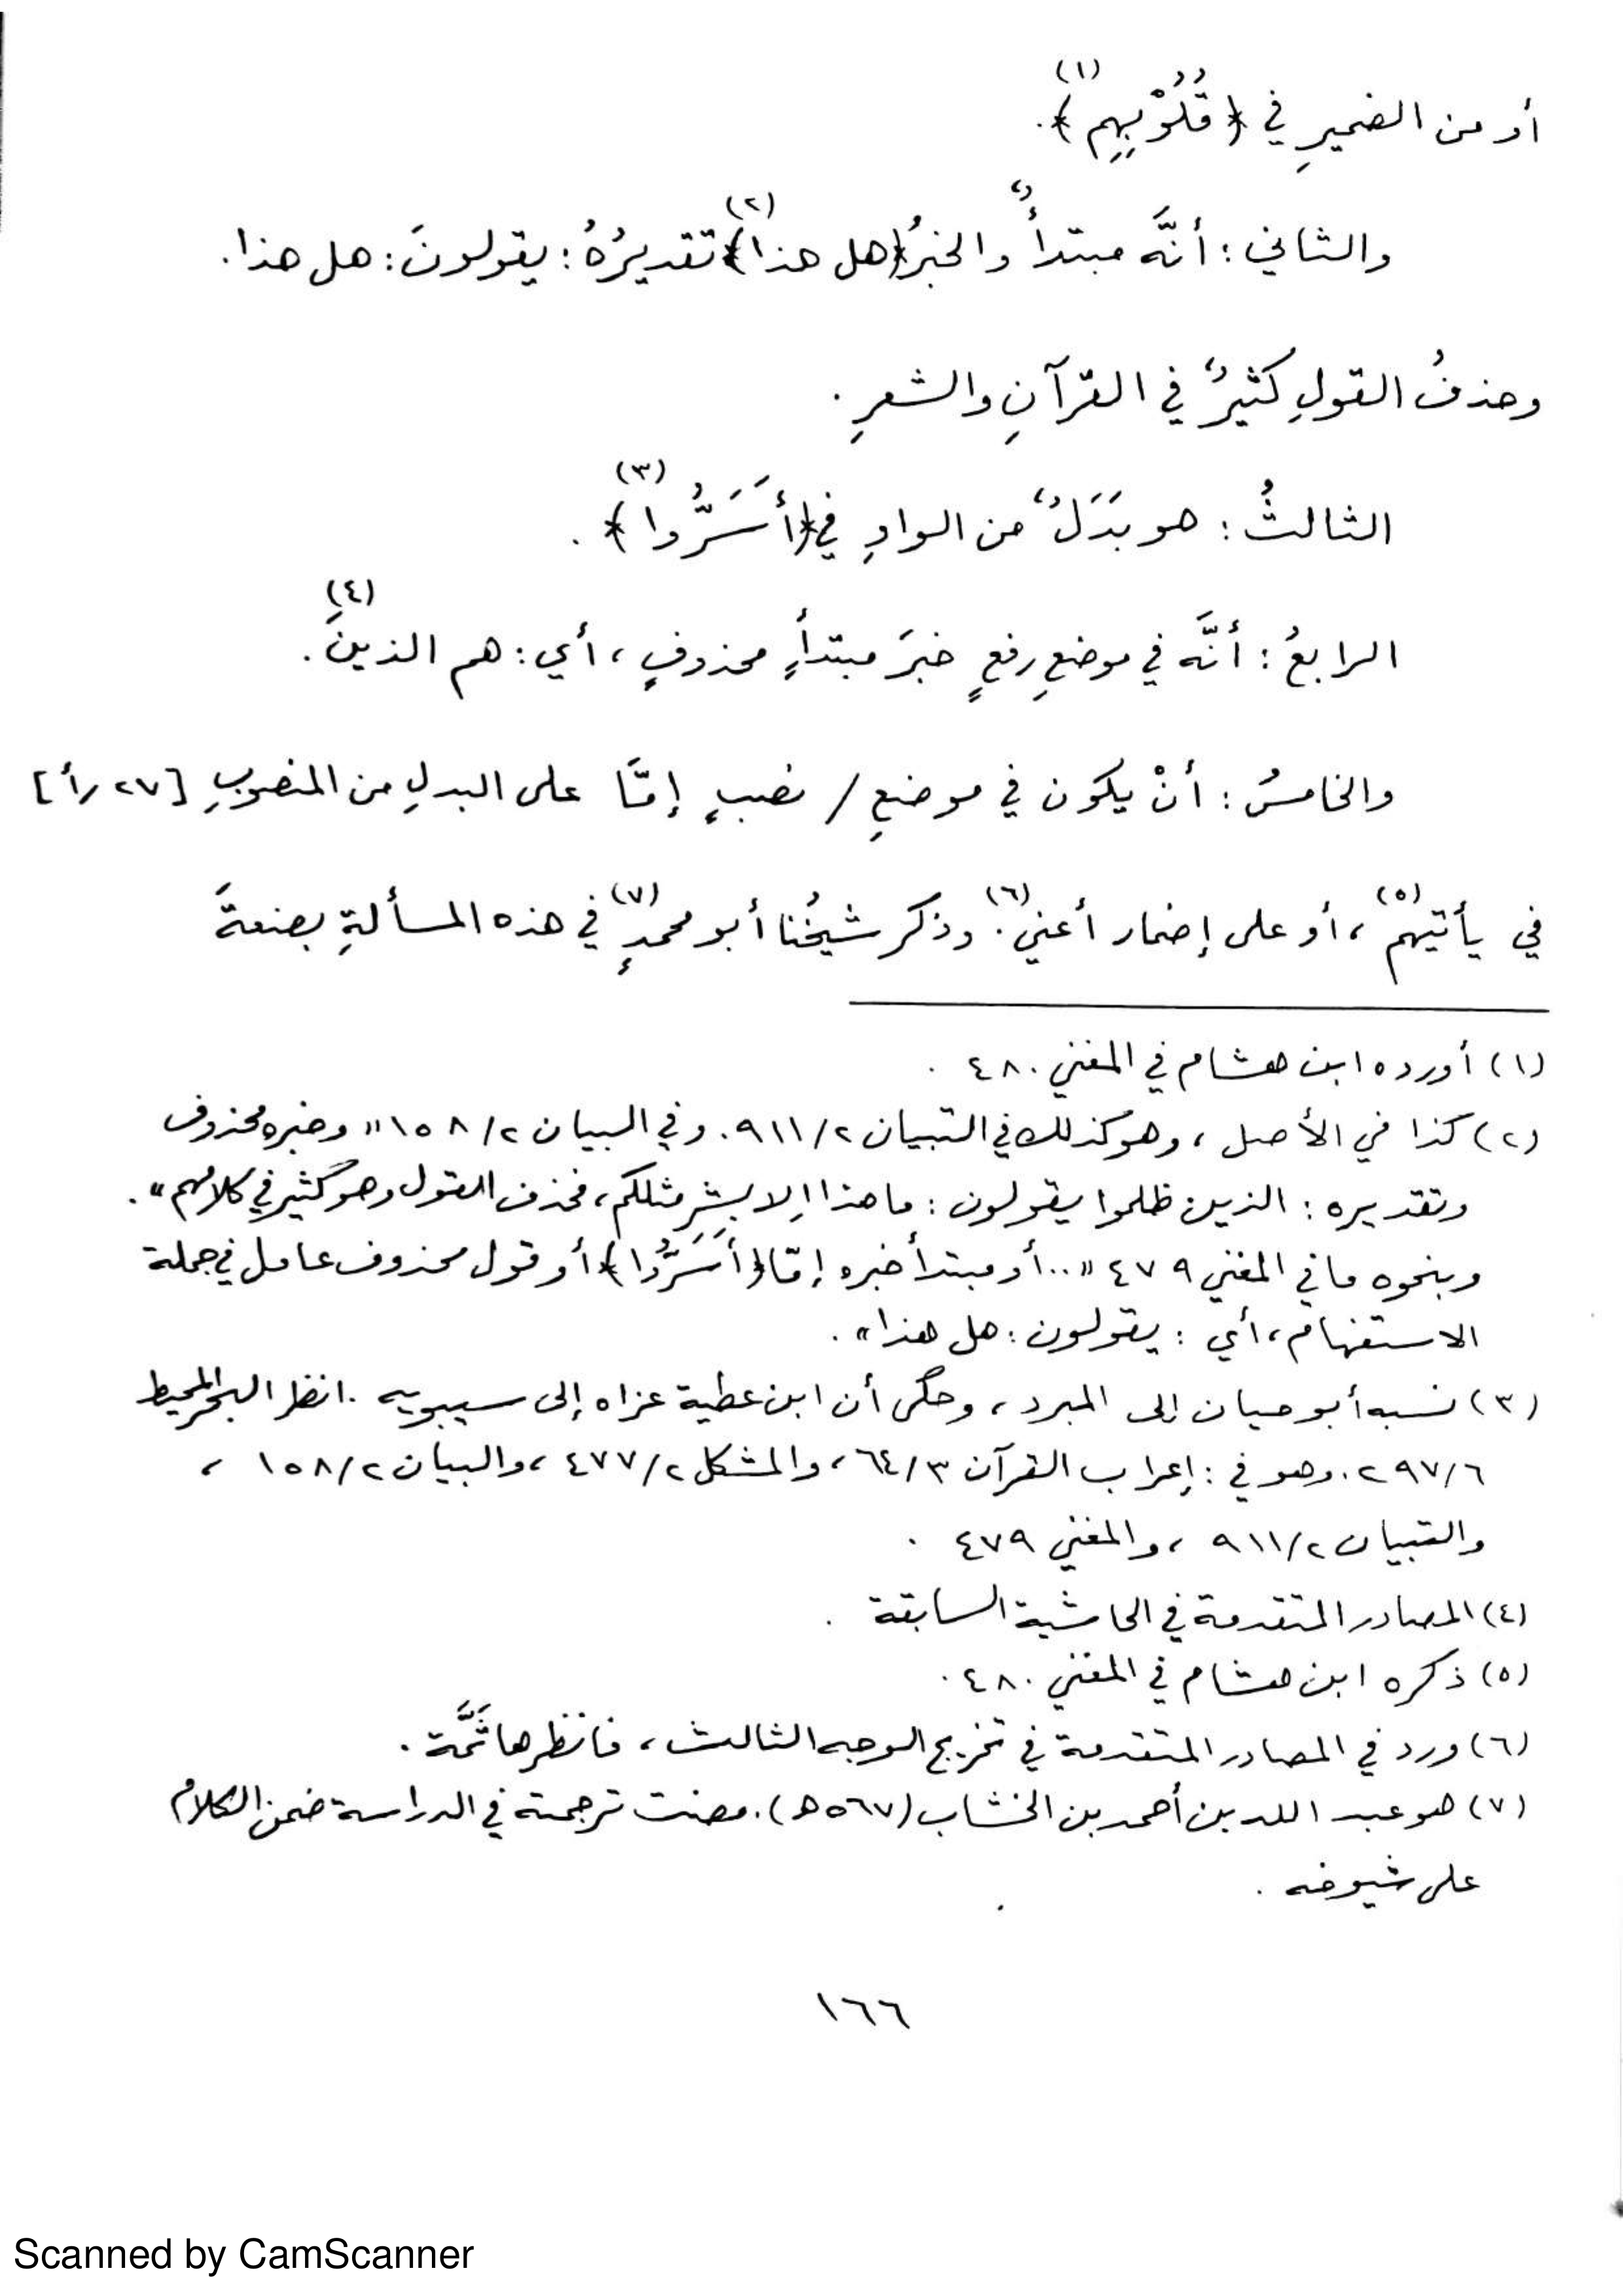 أو من الضميرِ في ﴿قُلُوْبِهِم﴾(١).
والثاني: أنَّه مبتدأٌ والخبرُ ﴿هل هذا﴾(٢) تقديرُهُ: يقولونَ: هل هذا.
وحذفُ القولِ كثيرٌ في القرآنِ والشعرِ.
الثالثُ: هو بَدَلٌ من الواوِ في ﴿أَسَرُّوا﴾(٣).
الرابعُ: أنَّه في موضعِ رفعٍ خبرَ مبتدأٍ محذوفٍ، أي: هم الذينَ(٤).
والخامسُ: أنْ يكون في موضعِ / نصبٍ إمَّا على البدلِ من المنصوبِ [٢٧/أ]
في يأتيهمْ(٥)، أو على إضمار أعني(٦). وذكر شيخُنا أبو محمدٍ(٧) في هذه المسألةِ بصنعةَ
(١) أورده ابن هشام في المغني ٤٨٠.
(٢) كذا في الأصل، وهو كذلك في التبيان ٩١١/٢. وفي البيان ١٥٨/٢ "وخبره محذوف
وتقديره: الذين ظلموا يقولون: ما هذا إلا بشر مثلكم، فحذف القول وهو كثير في كلامهم".
وبنحوه ما في المغني ٤٧٩ "..أو مبتدأ خبره إمّا ﴿أَسَرُّوا﴾ أو قول محذوف عامل في جملة
الاستفهام، أي: يقولون: هل هذا".
(٣) نسبه أبو حيان إلى المبرد، وحكى أن ابن عطية عزاه إلى سيبويه. انظر البحر المحيط
٢٩٧/٦. وهو في: إعراب القرآن ٦٤/٣، والمشكل ٤٧٧/٢، والبيان ١٥٨/٢،
والتبيان ٩١١/٢، والمغني ٤٧٩.
(٤) المصادر المتقدمة في الحاشية السابقة.
(٥) ذكره ابن هشام في المغني ٤٨٠.
(٦) ورد في المصادر المتقدمة في تخريج الوجه الثالث، فانظرها ثَمَّة.
(٧) هو عبد الله بن أحمد بن الخشاب (٥٦٧ هـ). مضت ترجمته في الدراسة ضمن الكلام
على شيوخه.
١٦٦
Scanned by CamScanner